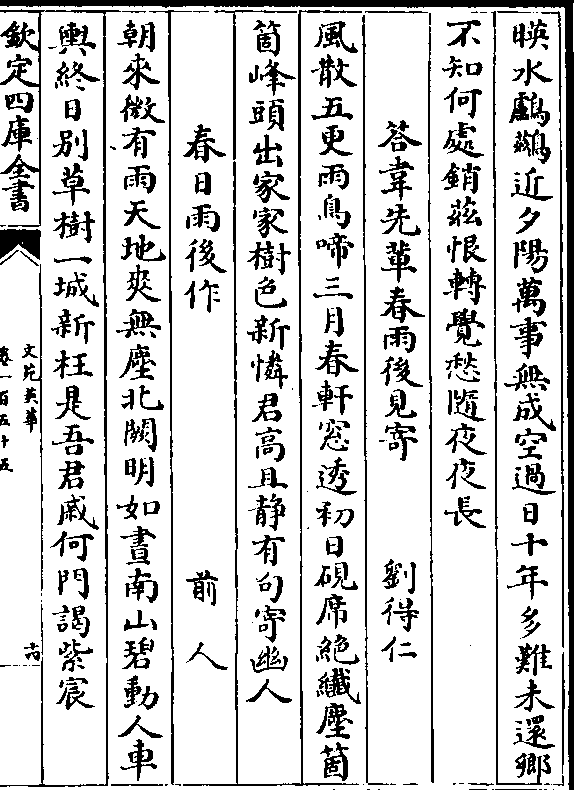 暎水鸕鷀近夕陽萬事無成空過日十年多難未還鄉
不知何處銷茲恨轉覺愁隨夜夜長
答韋先輩春雨後見寄 劉得仁
風散五更雨鳥啼三月春軒窓透初日硯席絶纎塵箇
箇峰頭出家家樹色新憐君高且静有句寄幽人
春日雨後作 前人
朝來微有雨天地爽無塵北闕明如晝南山碧動人車
輿終日别草樹一城新枉是吾君戚何門謁紫宸
欽定四庫全書
文苑英華
卷一百五十五
六